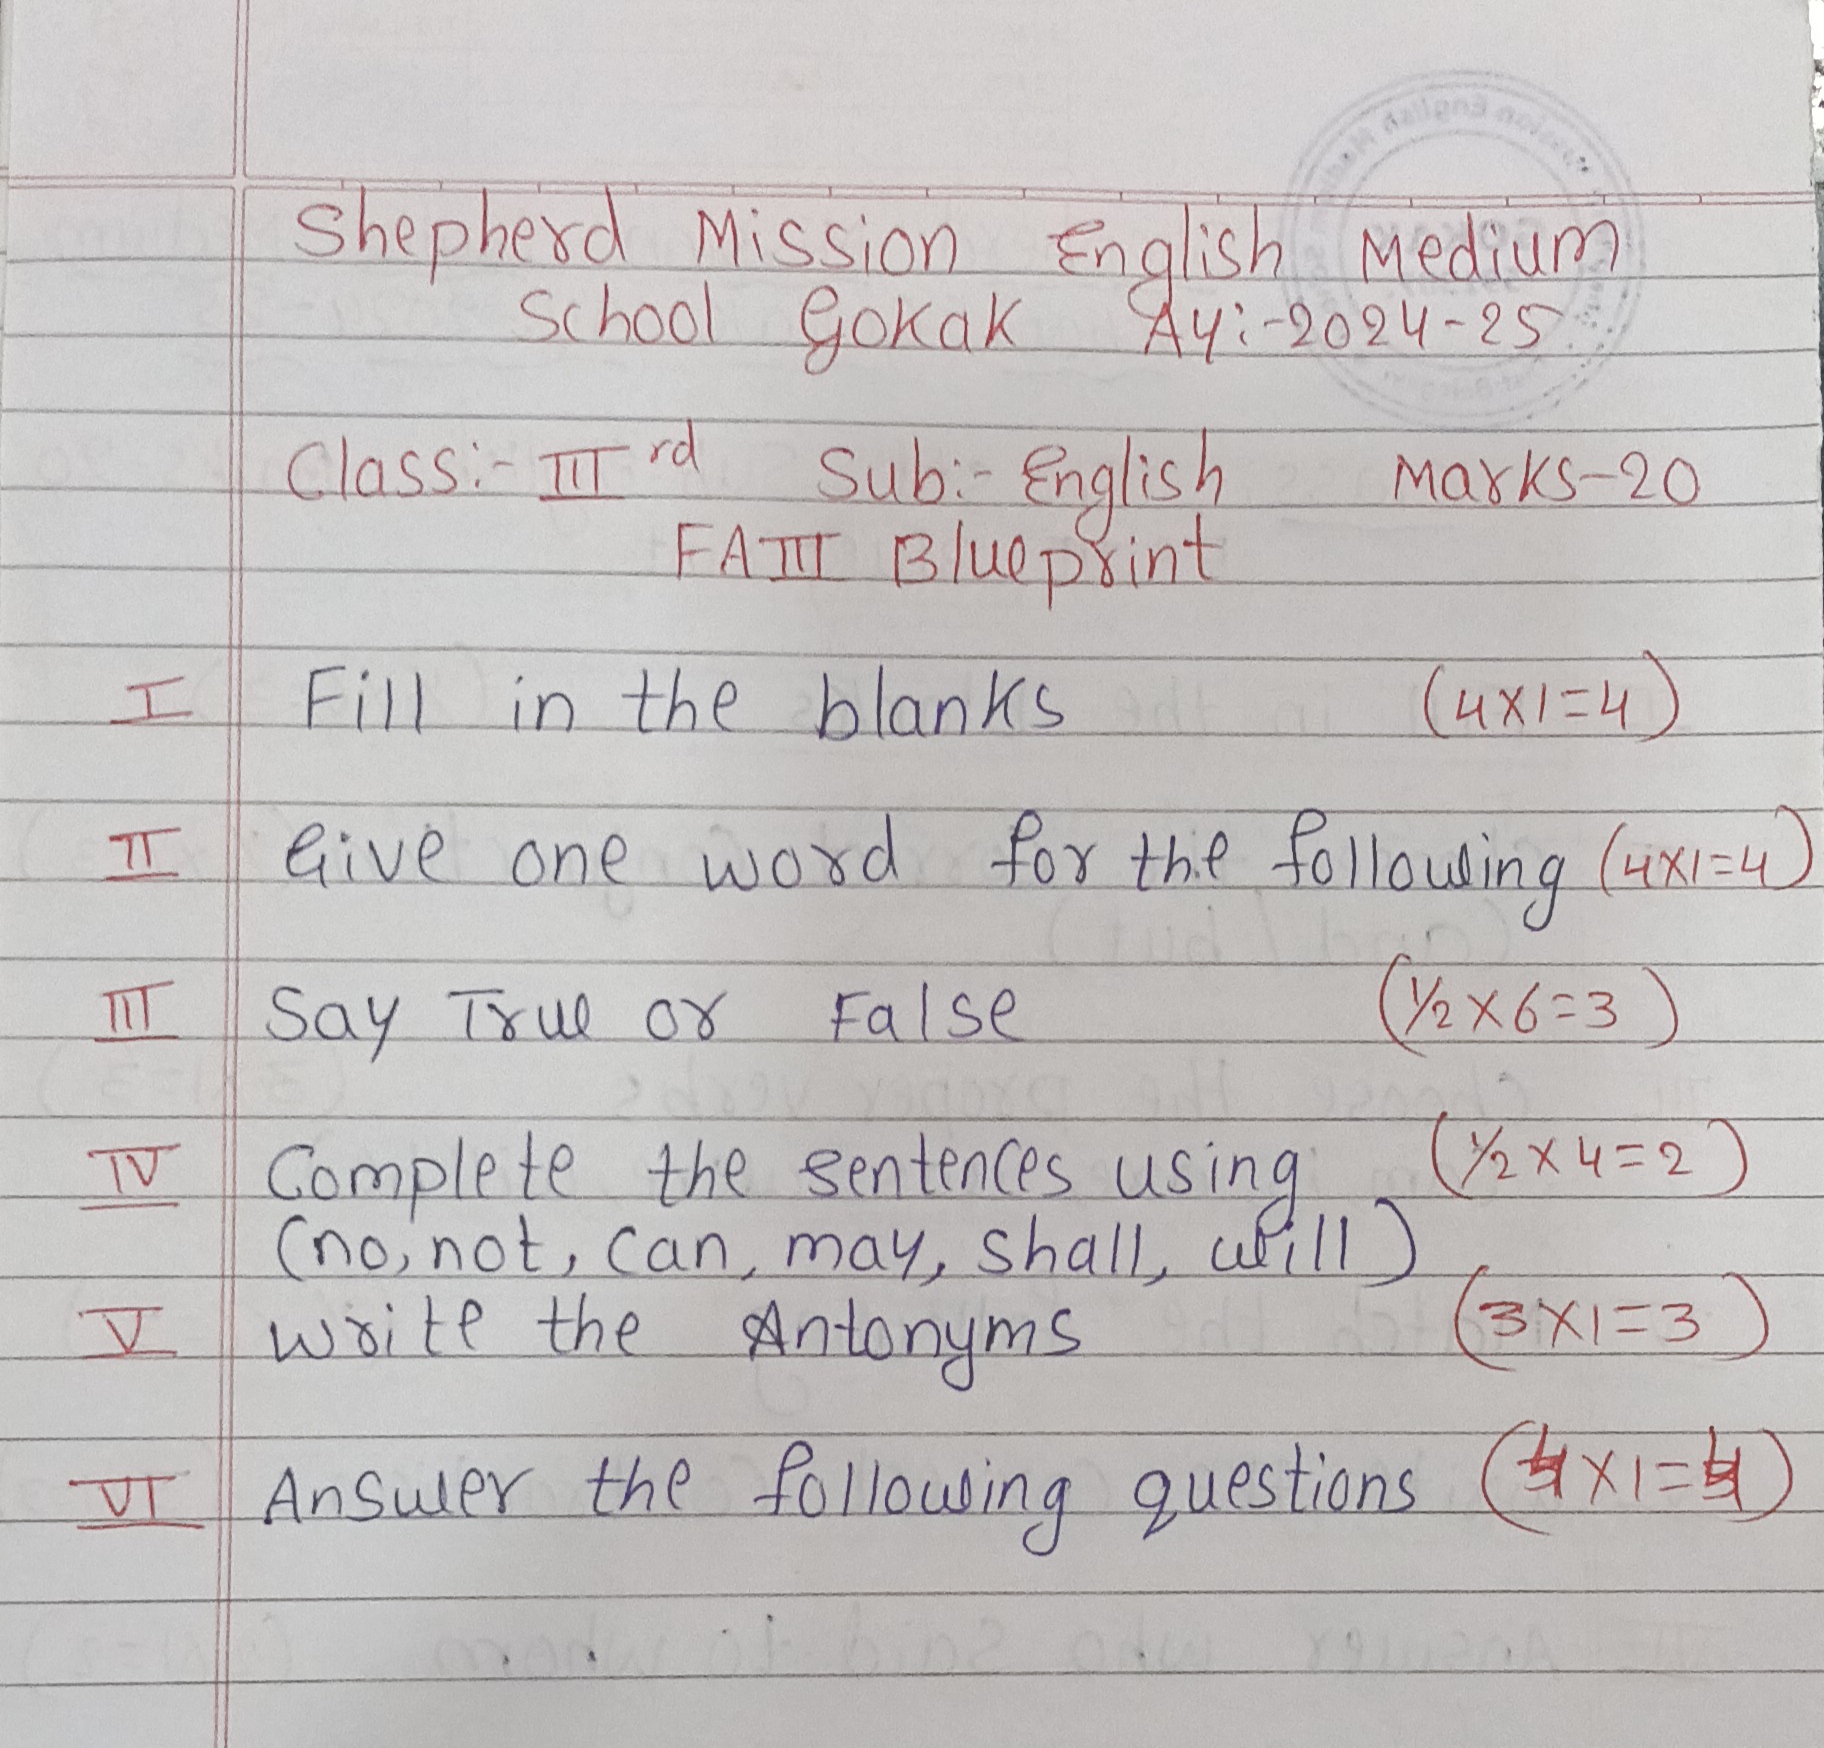 Shepherd Mission English Medium
School Gokak Ay:-2024-25
Class:- III rd Sub:- English Marks-20
FA III Blueprint
I Fill in the blanks (4x1=4)
II Give one word for the following (4x1=4)
III Say True or False (1/2 x 6=3)
IV Complete the sentences using (1/2 x 4=2)
(no, not, can, may, shall, will)
V Write the Antonyms (3x1=3)
VI Answer the following questions (4x1=4)